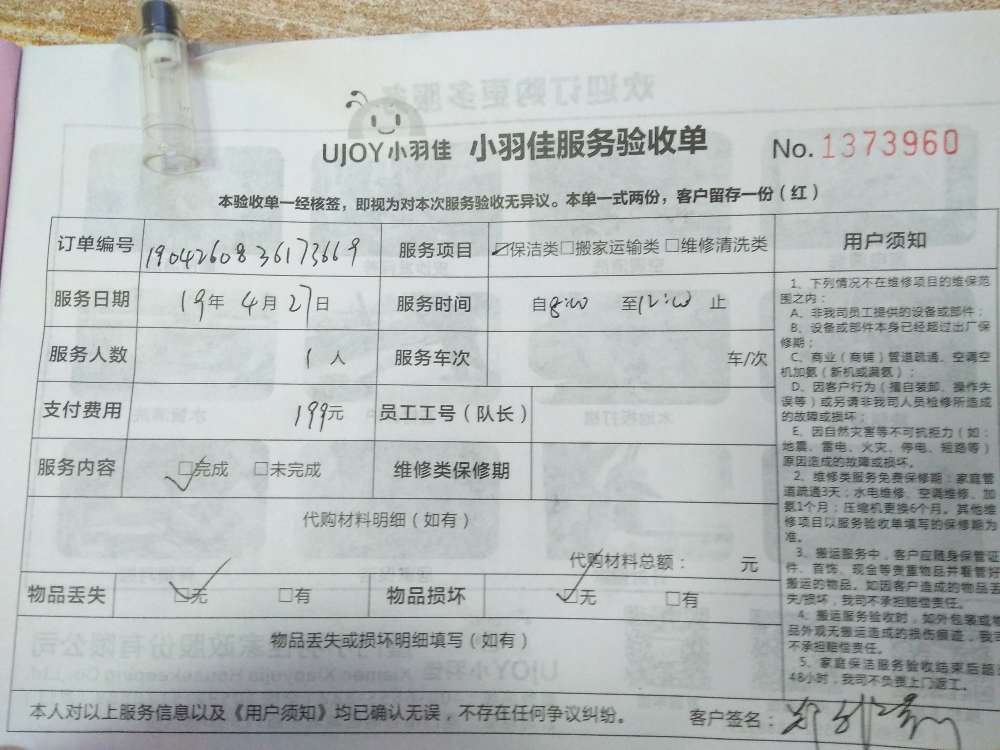 UJOY小羽佳 小羽佳服务验收单 No. 1373960
本验收单一经核签，即视为对本次服务验收无异议。本单一式两份，客户留存一份（红）
订单编号 1904260836173669 服务项目 ☑保洁类□搬家运输类□维修清洗类
服务日期 19年 4月 27日 服务时间 自8:00 至12:00 止
服务人数 1 人 服务车次 车/次
支付费用 199元 员工工号（队长）
服务内容 ☑完成 □未完成 维修类保修期
代购材料明细（如有）
代购材料总额： 元
物品丢失 ☑无 □有 物品损坏 ☑无 □有
物品丢失或损坏明细填写（如有）
本人对以上服务信息以及《用户须知》均已确认无误，不存在任何争议纠纷。 客户签名：
用户须知
1、下列情况不在维修项目的维保范
围之内：
A、非我司员工提供的设备或部件；
B、设备或部件本身已经超过出厂保
修期；
C、商业（商铺）管道疏通、空调空
机加氨（新机或漏氨）；
D、因客户行为（擅自装卸、操作失
误等）或另请非我司人员检修所造成
的故障或损坏；
E、因自然灾害等不可抗拒力（如：
地震、雷电、火灾、停电、短路等）
原因造成的故障或损坏。
2、维修类服务免费保修期：家庭管
道疏通3天；水电维修、空调维修、加
氨1个月；压缩机更换6个月。其他维
修项目以服务验收单填写的保修期为
准。
3、搬运服务中，客户应随身保管证
件、首饰、现金等贵重物品并看管好
搬运的物品。如因客户造成的物品丢
失/损坏，我司不承担赔偿责任。
4、搬运服务验收时，如外包装或物
品外观无搬运造成的损伤痕迹，我司
不承担赔偿责任。
5、家庭保洁服务验收结束后超
48小时，我司不负责上门返工。